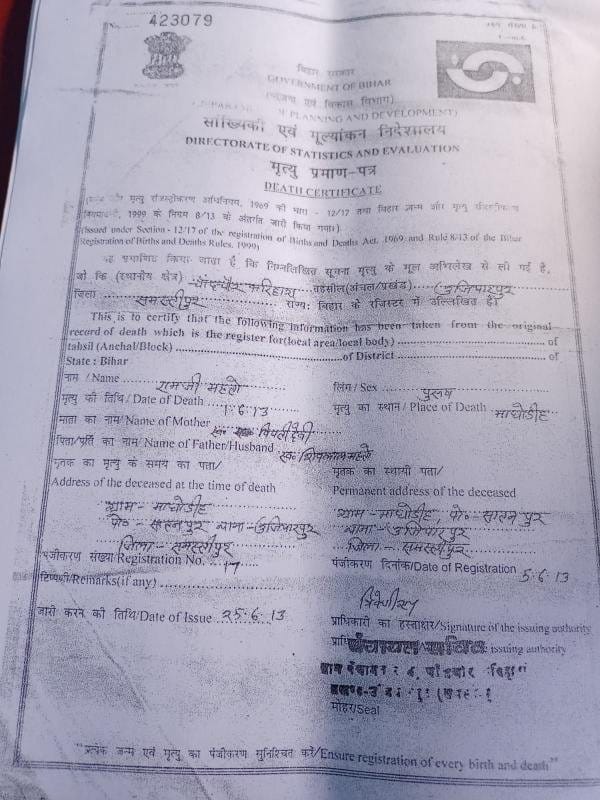 423079
बिहार सरकार
GOVERNMENT OF BIHAR
PLANNING AND DEVELOPMENT)
सांख्यिकी एवं मूल्यांकन निदेशालय
DIRECTORATE OF STATISTICS AND EVALUATION
मृत्यु प्रमाण-पत्र
DEATH CERTIFICATE
मृत्यु रजिस्ट्रीकरण अधिनियम, 1969 की धारा - 12/17 तथा बिहार जन्म और मृत्यु रजिस्ट्रीकरण
1999 के नियम 8/13 के अंतर्गत जारी किया गया)
(Issued under Section - 12/17 of the registration of Births and Deaths Act, 1969 and Rule 8/13 of the Bihar
Registration of Births and Deaths Rules, 1999)
यह प्रमाणित किया जाता है, कि निम्नलिखित सूचना मृत्यु के मूल अभिलेख से ली गई है,
जो कि (स्थानीय क्षेत्र) तहसील(अंचल/प्रखंड) उजियारपुर
जिला समस्तीपुर राज्य: बिहार के रजिस्टर में उल्लिखित है।
This is to certify that the following information has been taken from the original
record of death which is the register for(local area/local body) of
tahsil (Anchal/Block) of District of
State : Bihar
नाम / Name रामजी महतो लिंग / Sex पुरुष
मृत्यु की तिथि / Date of Death 1.6.13 मृत्यु का स्थान / Place of Death माधोडीह
माता का नाम/ Name of Mother देवी
पिता/पति का नाम/ Name of Father/Husband स्व० महतो
मृतक का मृत्यु के समय का पता/ मृतक का स्थायी पता/
Address of the deceased at the time of death Permanent address of the deceased
ग्राम - माधोडीह ग्राम - माधोडीह, पो०- सातनपुर
पो० - सातनपुर थाना - उजियारपुर थाना - उजियारपुर
जिला - समस्तीपुर जिला - समस्तीपुर
पंजीकरण संख्या/Registration No. 17 पंजीकरण दिनांक/Date of Registration 5.6.13
टिप्पणी/Remarks(if any)
जारी करने की तिथि/Date of Issue 25.6.13
प्राधिकारी का हस्ताक्षर/Signature of the issuing authority
issuing authority
पंचायत सचिव
मोहर/Seal
"प्रत्येक जन्म एवं मृत्यु का पंजीकरण सुनिश्चित करें/Ensure registration of every birth and death"